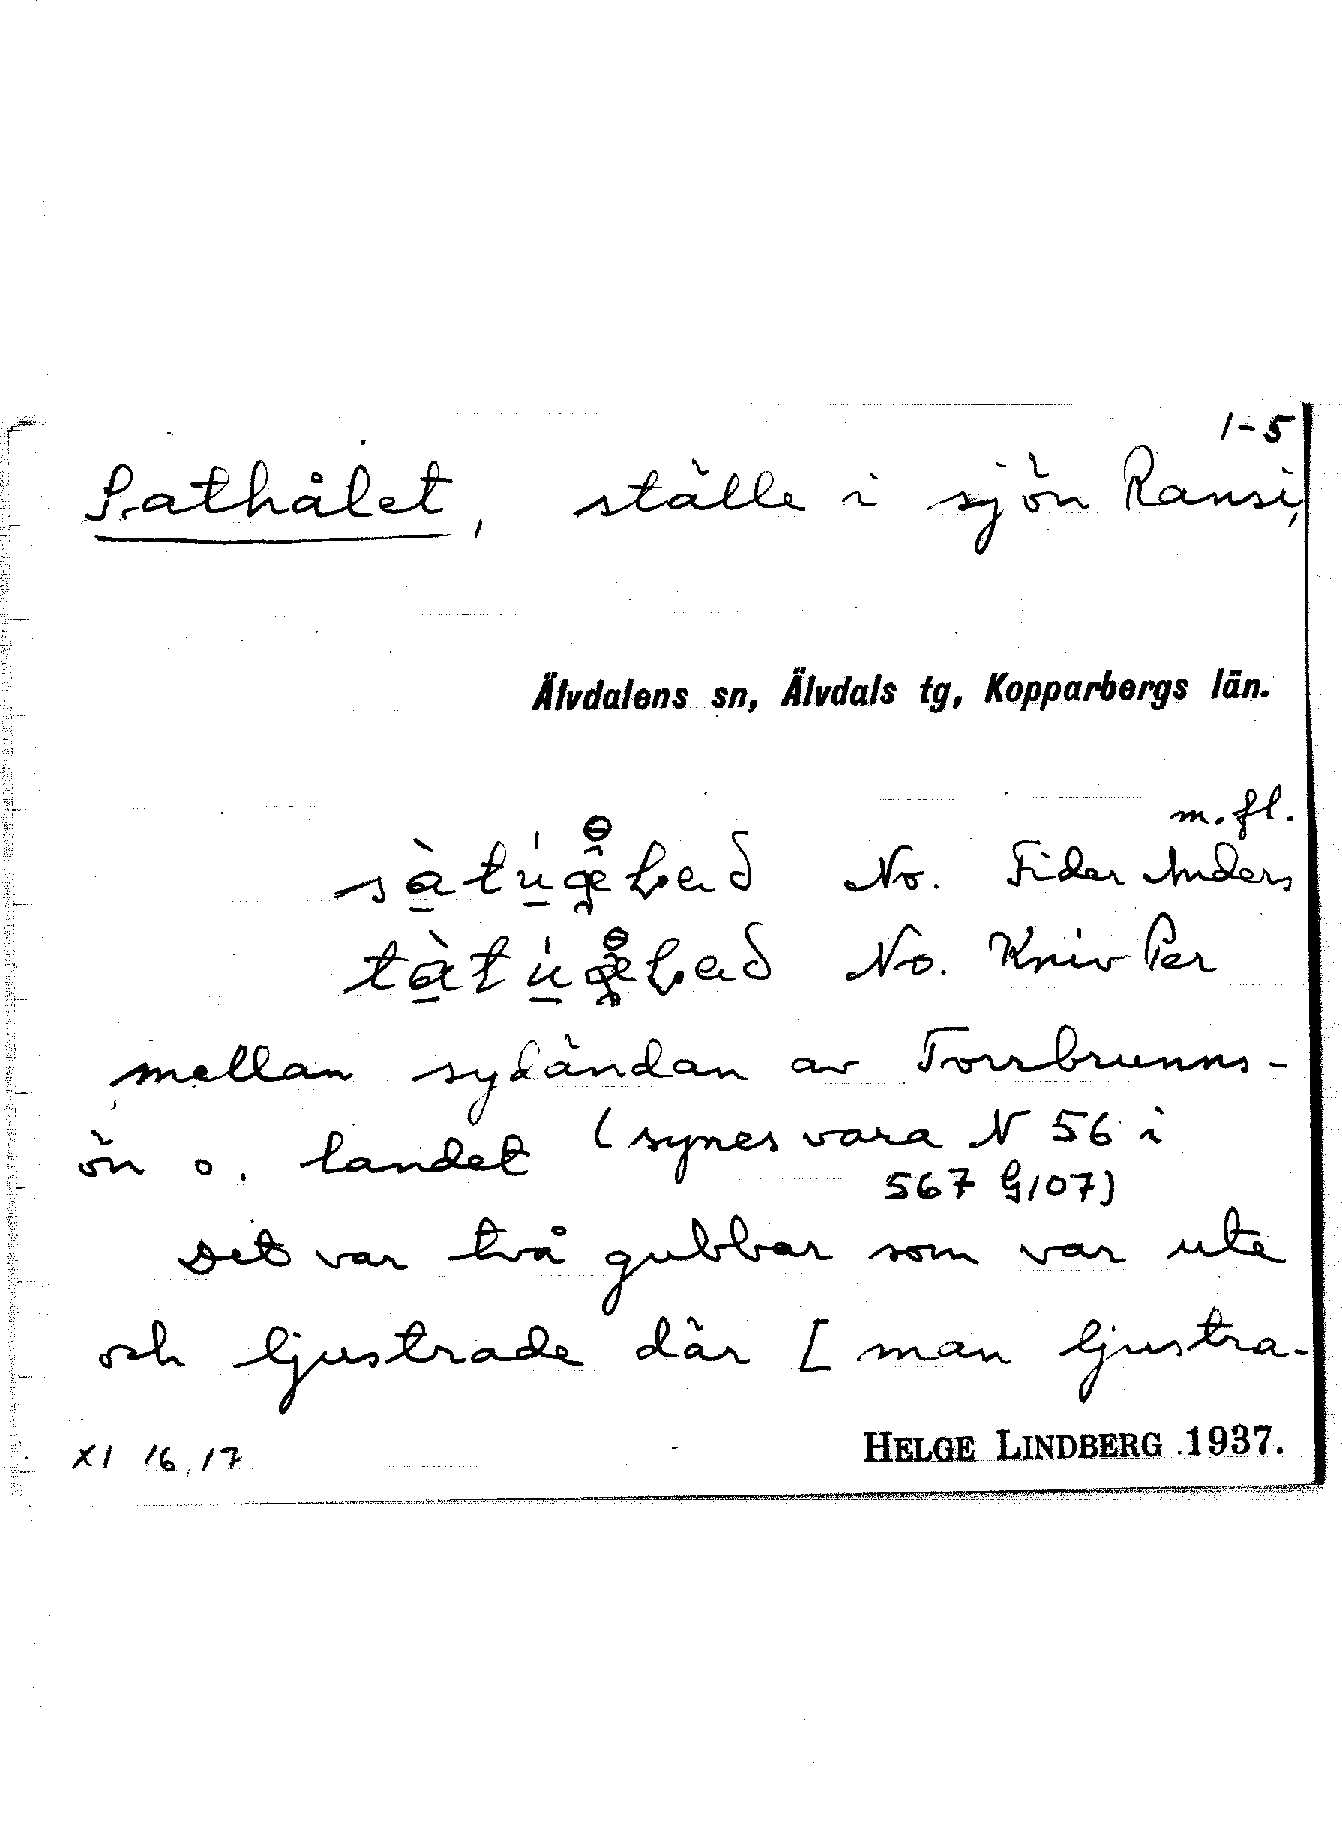 1-5
Sathålet, ställe i sjön Ransi,
Älvdalens sn, Älvdals tg, Kopparbergs län.
m.fl.
No. Fider Anders
No. Kniv Per
mellan sydändan av Torrbrunns-
ön o. landet (synes vara N 56 i
567 G107)
Det var två gubbar som var ute
och ljustrade där [ man ljustra-
XI 16, 17 HELGE LINDBERG 1937.